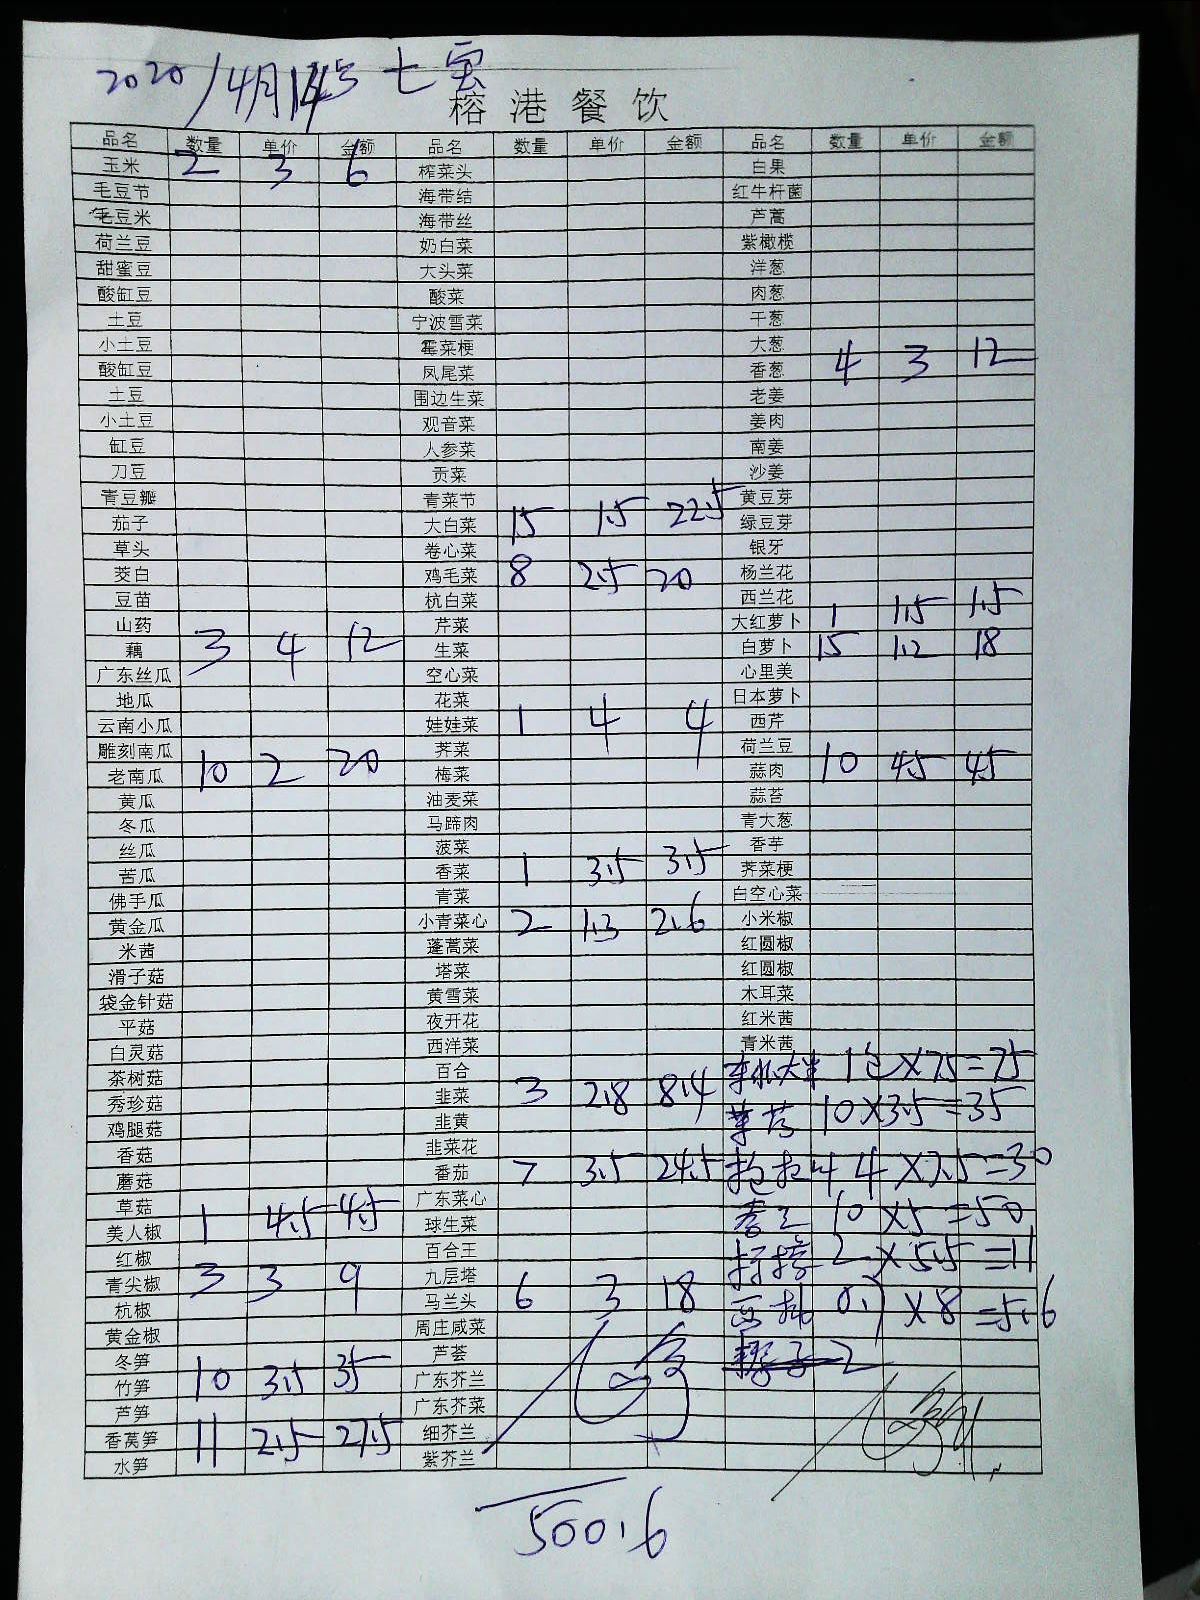 2020/4月14号 七宝
榕港餐饮
品名 数量 单价 金额 品名 数量 单价 金额 品名 数量 单价 金额
玉米 2 3 6 榨菜头 白果
毛豆节 海带结 红牛杆菌
毛豆米 海带丝 芦蒿
荷兰豆 奶白菜 紫橄榄
甜蜜豆 大头菜 洋葱
酸缸豆 酸菜 肉葱
土豆 宁波雪菜 干葱
小土豆 霉菜梗 大葱
酸缸豆 凤尾菜 香葱 4 3 12
土豆 围边生菜 老姜
小土豆 观音菜 姜肉
缸豆 人参菜 南姜
刀豆 贡菜 沙姜
青豆瓣 青菜节 黄豆芽
茄子 大白菜 15 1.5 22.5 绿豆芽
草头 卷心菜 银牙
茭白 鸡毛菜 8 2.5 20 杨兰花
豆苗 杭白菜 西兰花
山药 芹菜 大红萝卜 1 1.5 1.5
藕 3 4 12 生菜 白萝卜 15 1.2 18
广东丝瓜 空心菜 心里美
地瓜 花菜 日本萝卜
云南小瓜 娃娃菜 1 4 4 西芹
雕刻南瓜 荠菜 荷兰豆
老南瓜 10 2 20 梅菜 蒜肉 10 4.5 45
黄瓜 油麦菜 蒜苔
冬瓜 马蹄肉 青大葱
丝瓜 菠菜 香芋
苦瓜 香菜 1 3.5 3.5 荠菜梗
佛手瓜 青菜 白空心菜
黄金瓜 小青菜心 2 1.3 2.6 小米椒
米茜 蓬蒿菜 红圆椒
滑子菇 塔菜 红圆椒
袋金针菇 黄雪菜 木耳菜
平菇 夜开花 红米茜
白灵菇 西洋菜 青米茜
茶树菇 百合 大米 1包×75=75
秀珍菇 韭菜 3 2.8 8.4
鸡腿菇 韭黄 10×3.5=35
香菇 韭菜花
蘑菇 番茄 7 3.5 24.5 4×7.5=30
草菇 广东菜心
美人椒 1 4.5 4.5 球生菜 10×5=50
红椒 百合王 2×5.5=11
青尖椒 3 3 9 九层塔
杭椒 马兰头 6 3 18 0.7×8=5.6
黄金椒 周庄咸菜
冬笋 芦荟 椰子 2
竹笋 10 3.5 35 广东芥兰
芦笋 广东芥菜
香莴笋 11 2.5 27.5 细芥兰
水笋 紫芥兰
500.6